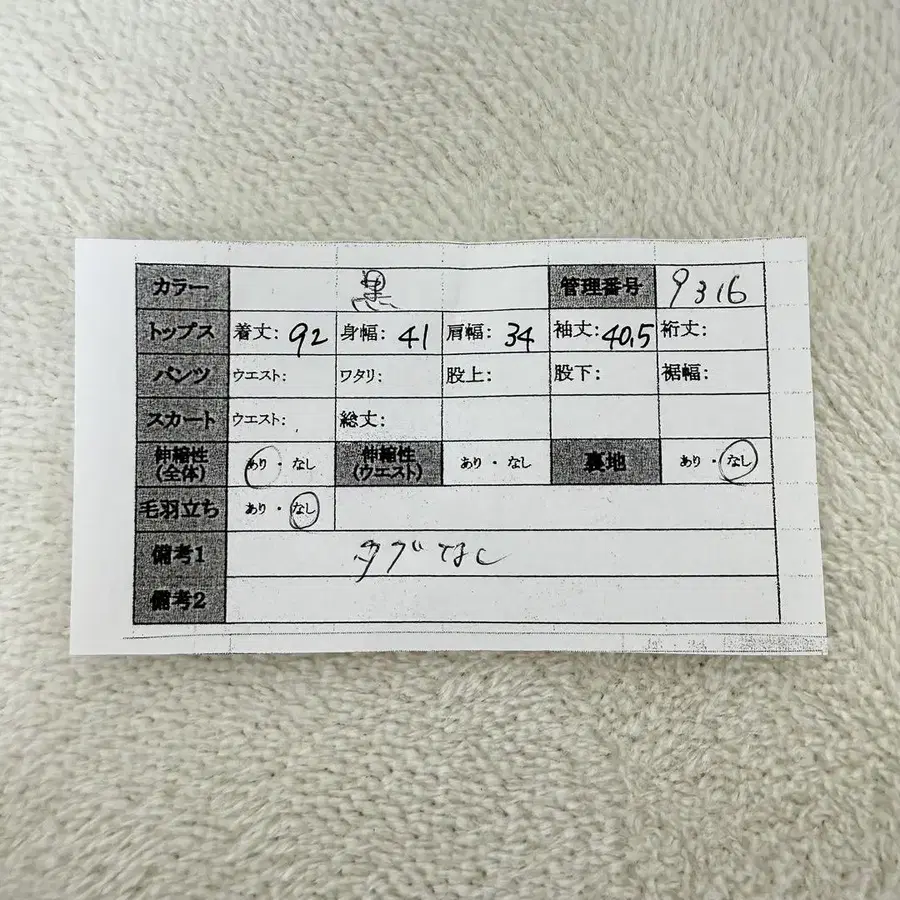 カラー 黒 管理番号 9316
トップス 着丈: 92 身幅: 41 肩幅: 34 袖丈: 40.5 裄丈:
パンツ ウエスト: ワタリ: 股上: 股下: 裾幅:
スカート ウエスト: 総丈:
伸縮性(全体) あり・なし 伸縮性(ウエスト) あり・なし 裏地 あり・なし
毛羽立ち あり・なし
備考1 タグなし
備考2